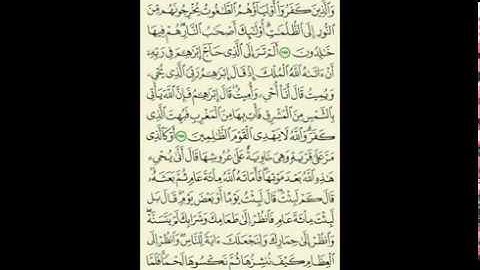 وَٱلَّذِينَ كَفَرُوٓا۟ أَوْلِيَآؤُهُمُ ٱلطَّٰغُوتُ يُخْرِجُونَهُم مِّنَ
ٱلنُّورِ إِلَى ٱلظُّلُمَٰتِ ۗ أُو۟لَٰٓئِكَ أَصْحَٰبُ ٱلنَّارِ ۖ هُمْ فِيهَا
خَٰلِدُونَ ٢٥٧ أَلَمْ تَرَ إِلَى ٱلَّذِى حَآجَّ إِبْرَٰهِۦمَ فِى رَبِّهِۦٓ
أَنْ ءَاتَىٰهُ ٱللَّهُ ٱلْمُلْكَ إِذْ قَالَ إِبْرَٰهِۦمُ رَبِّىَ ٱلَّذِى يُحْىِۦ
وَيُمِيتُ قَالَ أَنَا۠ أُحْىِۦ وَأُمِيتُ ۖ قَالَ إِبْرَٰهِۦمُ فَإِنَّ ٱللَّهَ يَأْتِى
بِٱلشَّمْسِ مِنَ ٱلْمَشْرِقِ فَأْتِ بِهَا مِنَ ٱلْمَغْرِبِ فَبُهِتَ ٱلَّذِى
كَفَرَ ۗ وَٱللَّهُ لَا يَهْدِى ٱلْقَوْمَ ٱلظَّٰلِمِينَ ٢٥٨ أَوْ كَٱلَّذِى
مَرَّ عَلَىٰ قَرْيَةٍ وَهِىَ خَاوِيَةٌ عَلَىٰ عُرُوشِهَا قَالَ أَنَّىٰ يُحْىِۦ
هَٰذِهِ ٱللَّهُ بَعْدَ مَوْتِهَا ۖ فَأَمَاتَهُ ٱللَّهُ مِا۟ئَةَ عَامٍ ثُمَّ بَعَثَهُۥ ۖ
قَالَ كَمْ لَبِثْتَ ۖ قَالَ لَبِثْتُ يَوْمًا أَوْ بَعْضَ يَوْمٍ ۖ قَالَ بَل
لَّبِثْتَ مِا۟ئَةَ عَامٍ فَٱنظُرْ إِلَىٰ طَعَامِكَ وَشَرَابِكَ لَمْ يَتَسَنَّهْ ۖ
وَٱنظُرْ إِلَىٰ حِمَارِكَ وَلِنَجْعَلَكَ ءَايَةً لِّلنَّاسِ ۖ وَٱنظُرْ إِلَى
ٱلْعِظَامِ كَيْفَ نُنشِزُهَا ثُمَّ نَكْسُوهَا لَحْمًا ۚ فَلَمَّا